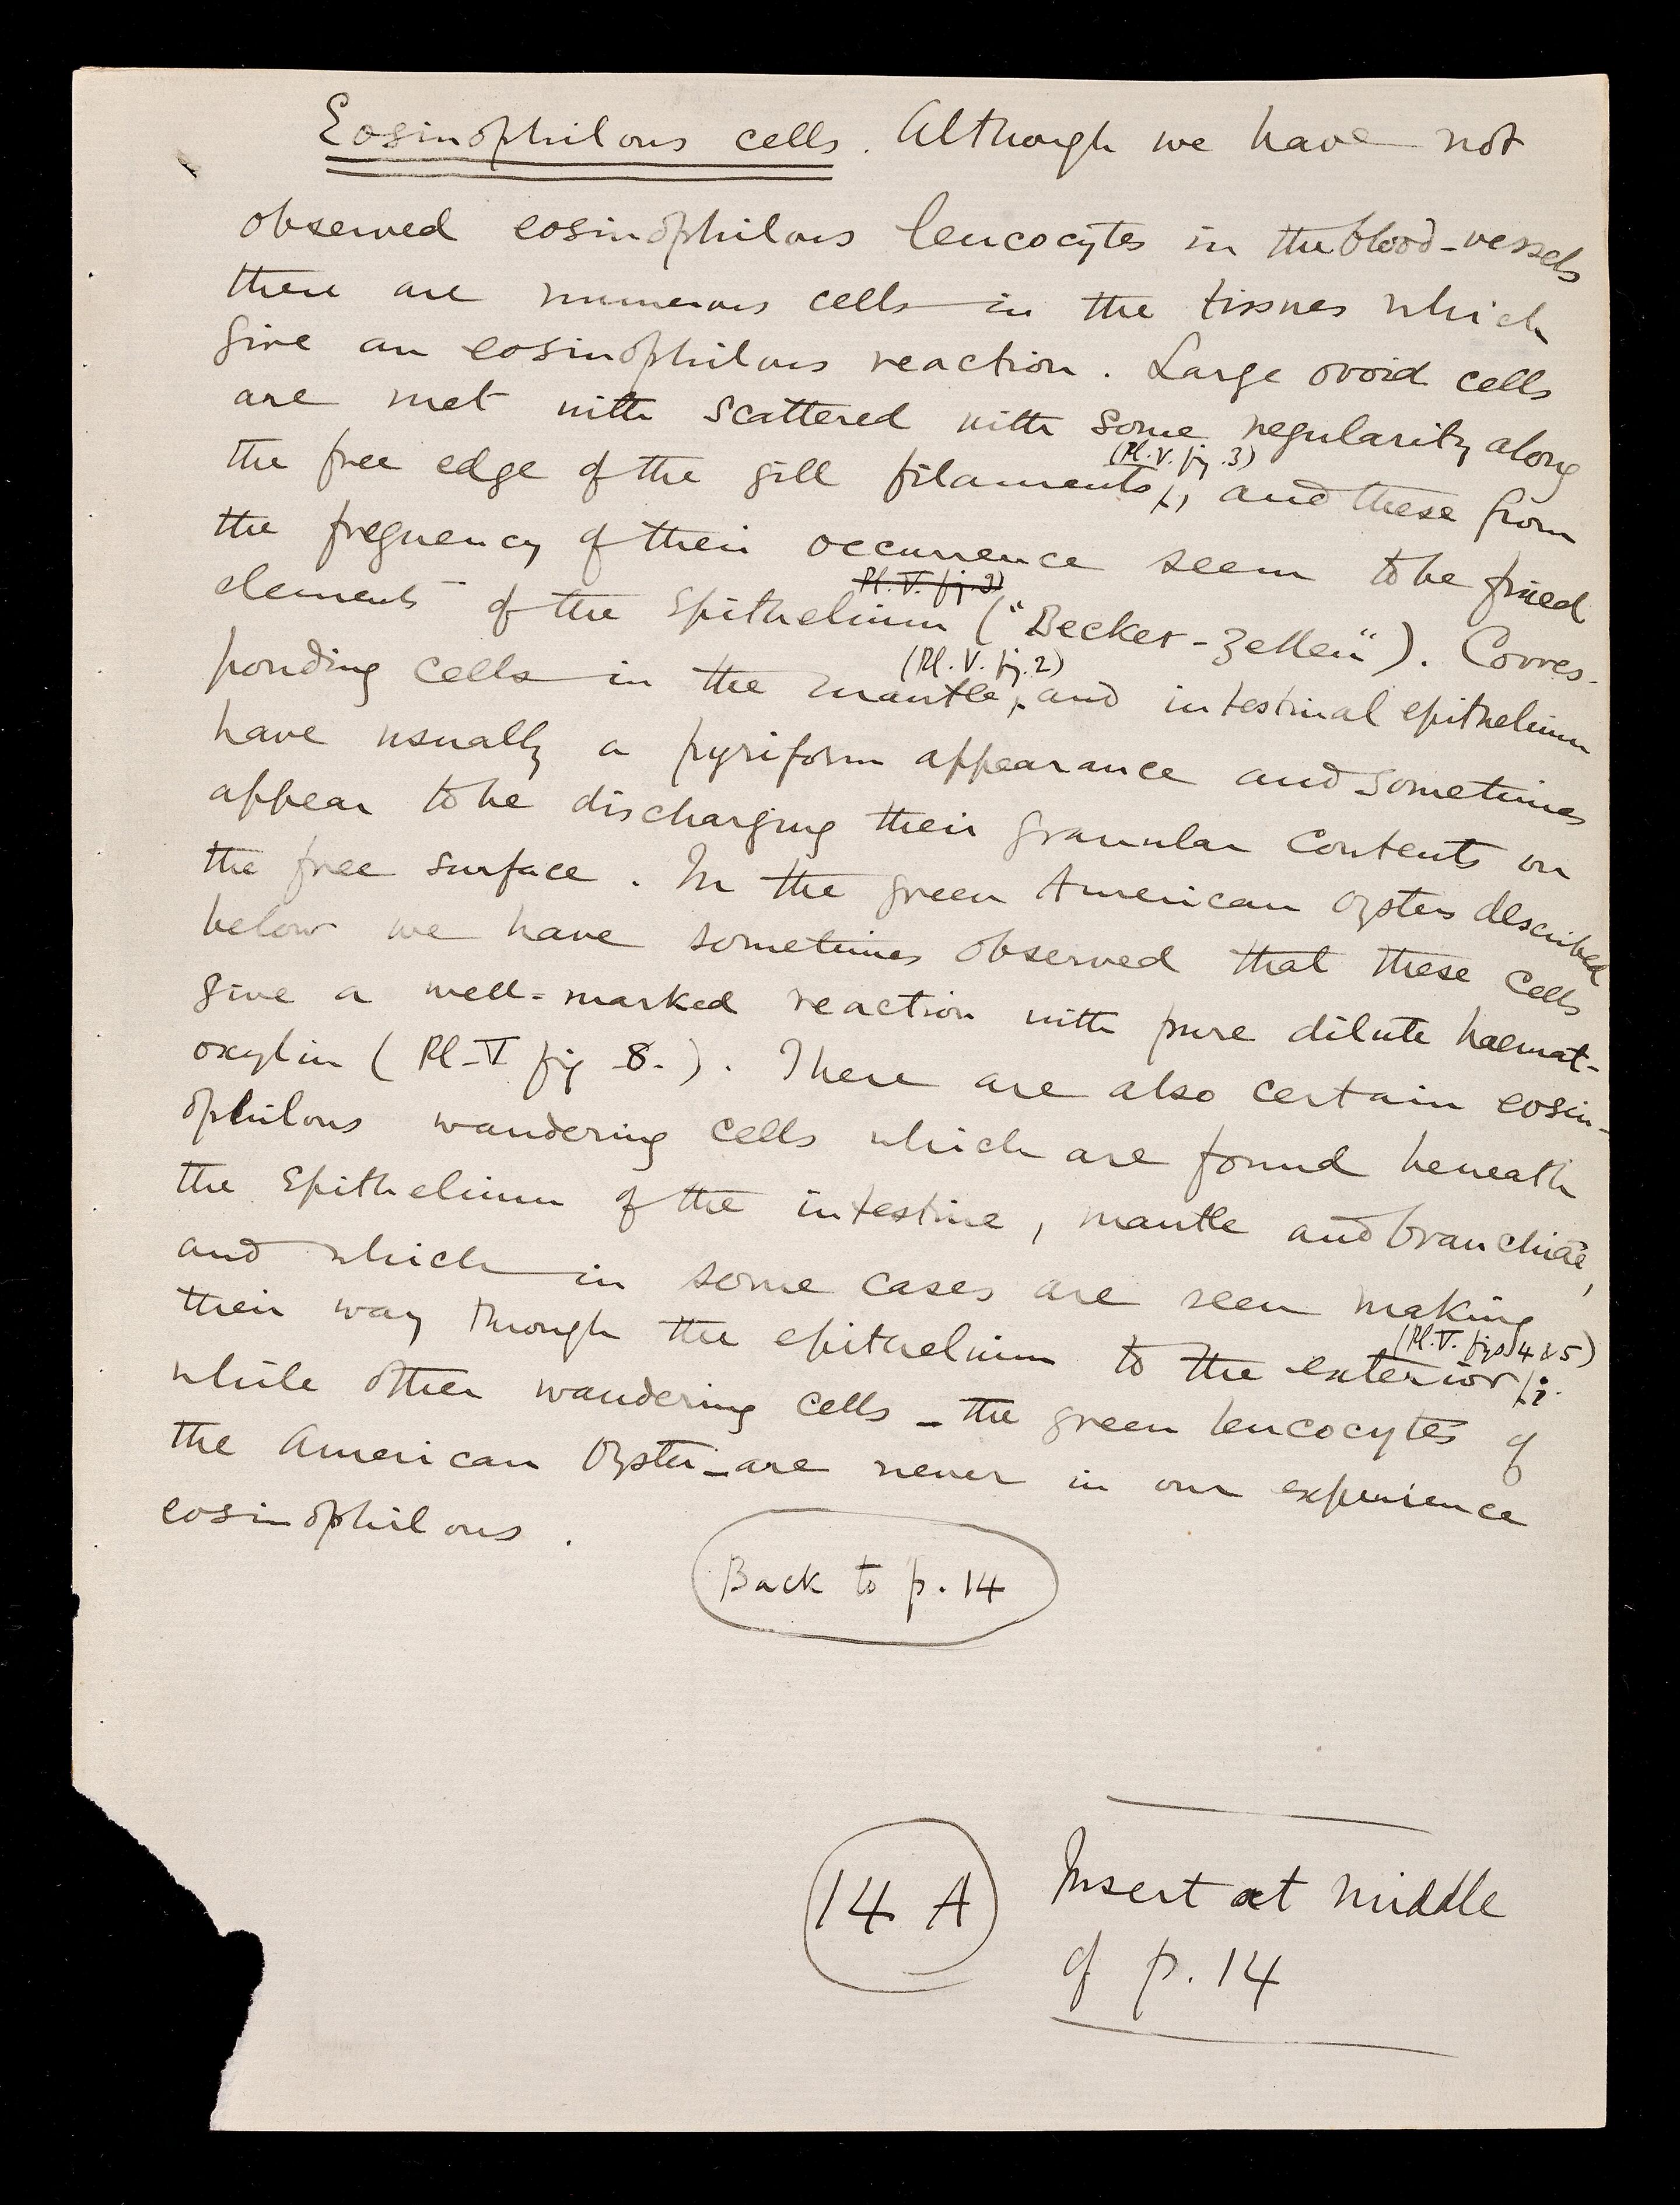 Eosinophilous cells. Although we have not
observed eosinophilous leucocytes in the blood-vessels
there are numerous cells in the tissues which
give an eosinophilous reaction. Large ovoid cells
are met with scattered with some regularity along
(Pl. V. fig. 3)
the free edge of the gill filaments, and these from
the frequency of their occurrence seem to be fixed
Pl. V. fig. 3)
elements of the epithelium ("Becker-Zellen"). Corres-
(Pl. V. fig. 2)
ponding cells in the mantle, and intestinal epithelium
have usually a pyriform appearance and sometimes
appear to be discharging their granular contents on
the free surface. In the green American oysters described
below we have sometimes observed that these cells
give a well-marked reaction with pure dilute haemat-
oxylin (Pl. V fig 8.). There are also certain eosin-
ophilous wandering cells which are found beneath
the epithelium of the intestine, mantle and branchiae,
and which in some cases are seen making
(Pl. V. figs 4 & 5)
their way through the epithelium to the exterior;
while other wandering cells - the green leucocytes of
the American Oyster - are never in our experience
eosinophilous.
Back to p. 14
14 A
Insert at middle
of p. 14